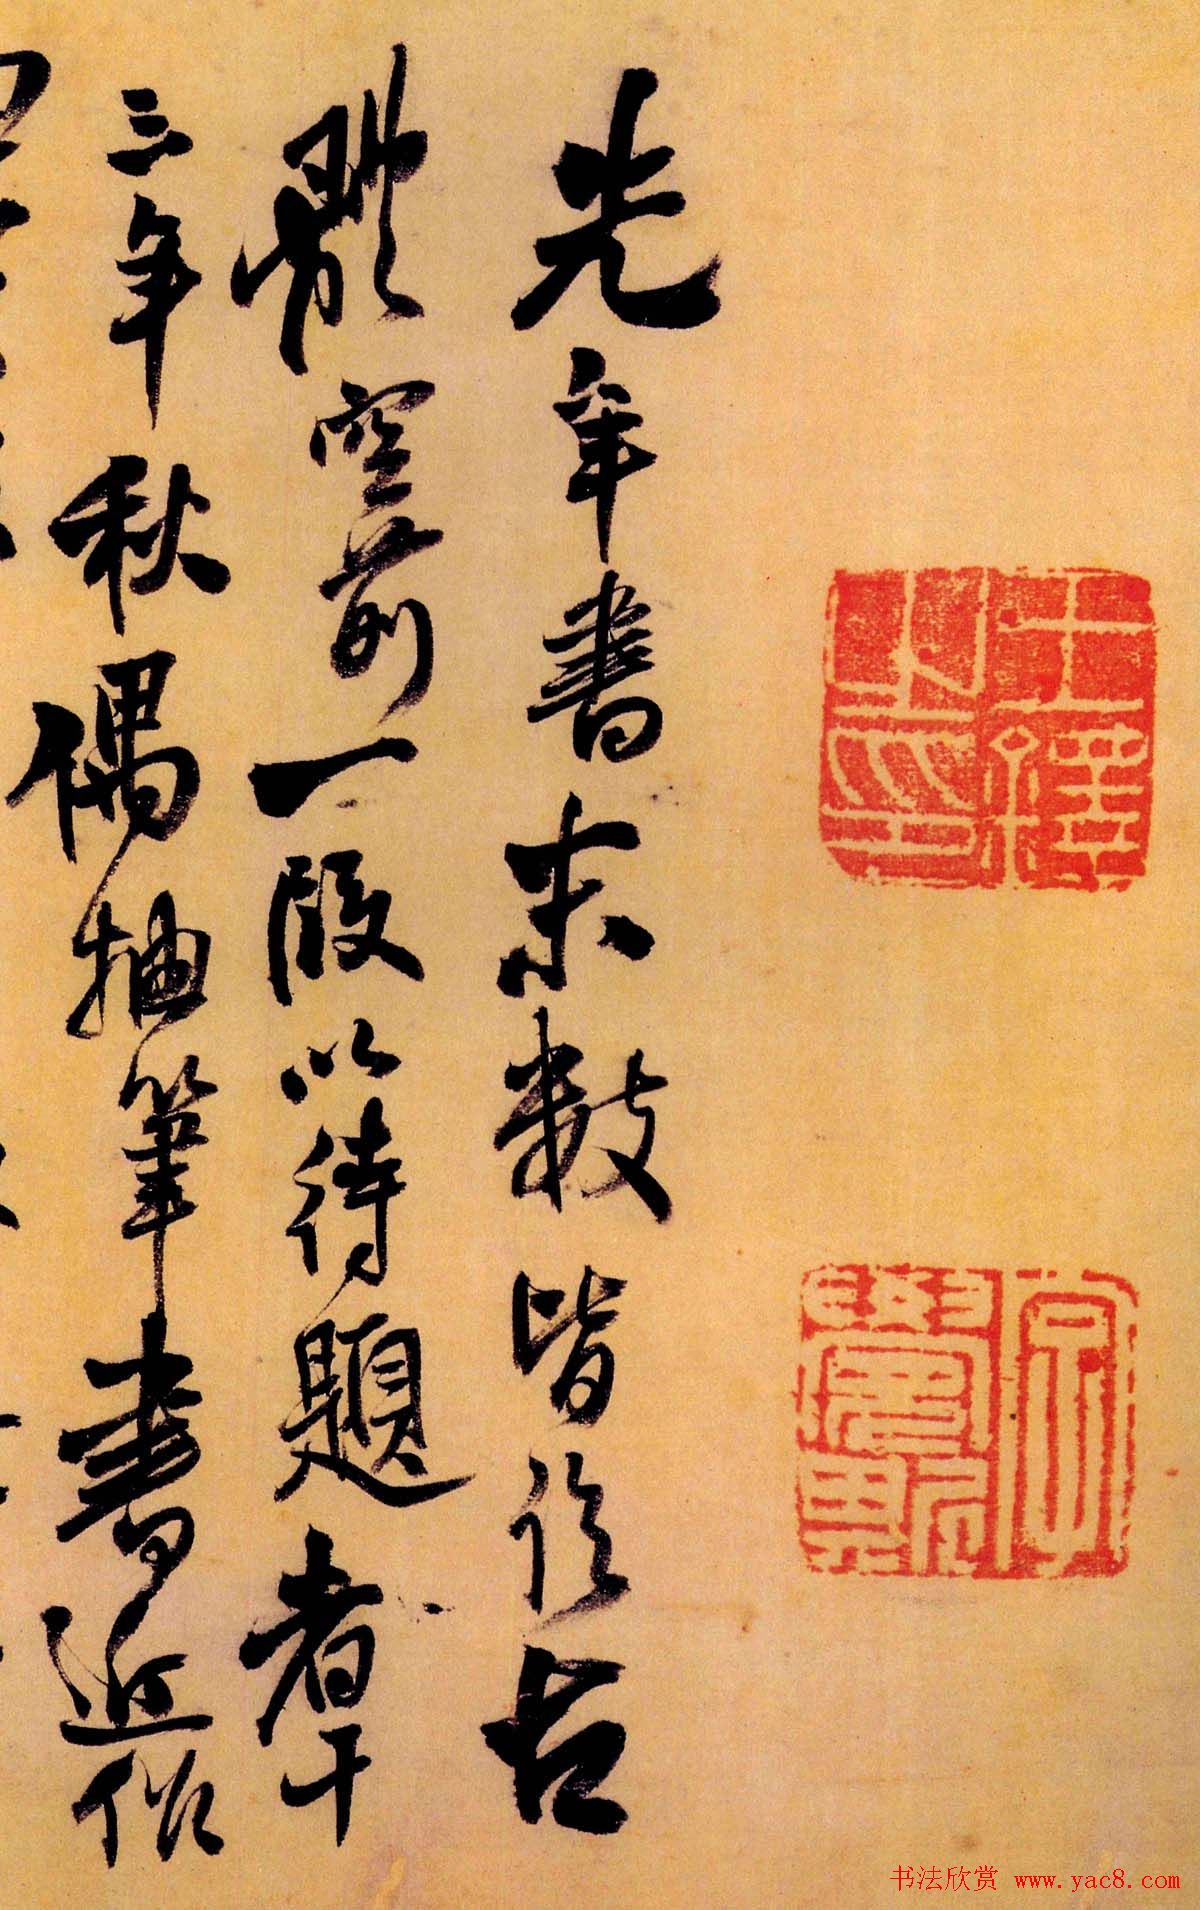 光年書未数皆作古
體空前一段以待題者十
三年秋偶抽筆書近作
王鐸之印
书法欣赏 www.yac8.com